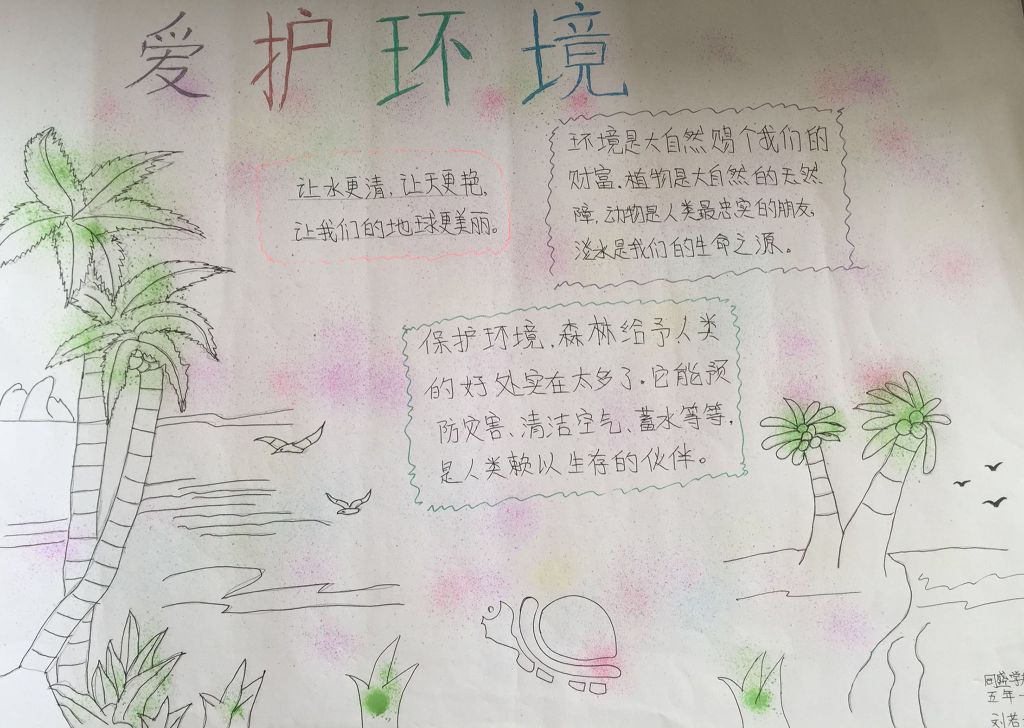 爱护环境
让水更清,让天更艳,
让我们的地球更美丽。
环境是大自然赐个我们的
财富.植物是大自然的天然
障,动物是人类最忠实的朋友,
淡水是我们的生命之源。
保护环境,森林给予人类
的好处实在太多了.它能预
防灾害、清洁空气、蓄水等等,
是人类赖以生存的伙伴。
五年一
刘若